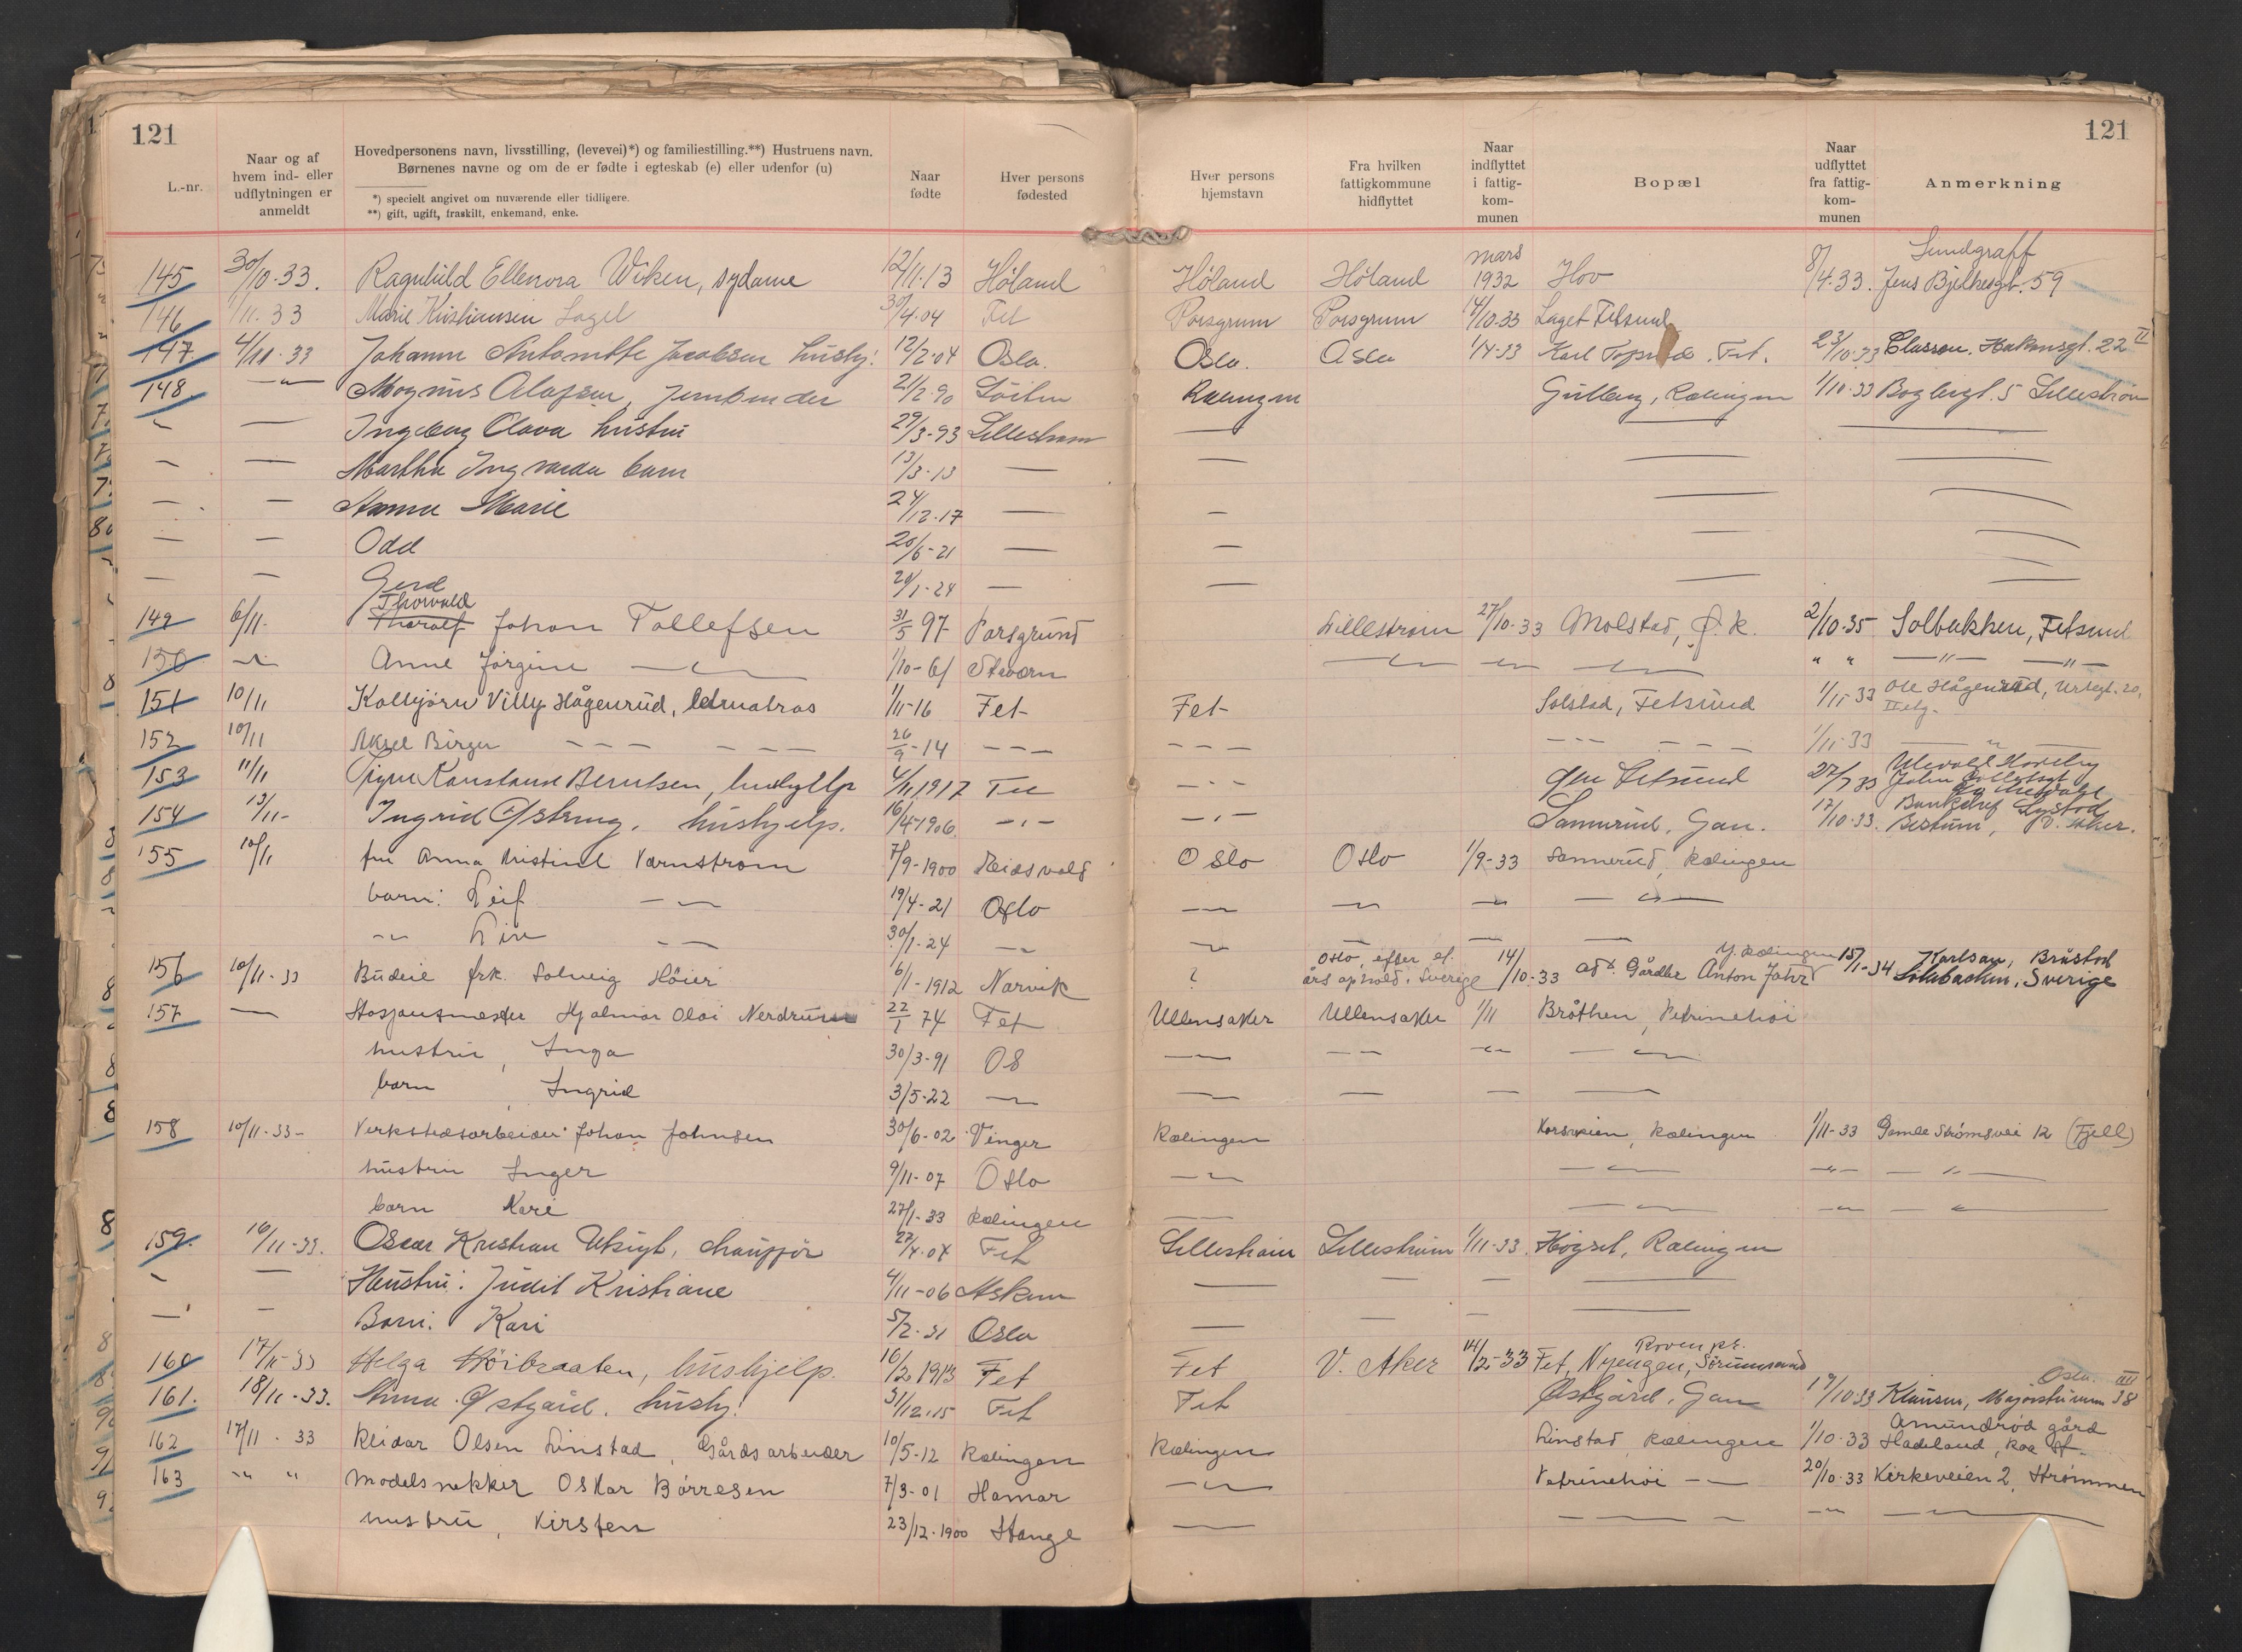 121
121
L.-nr.
Naar og af hvem ind- eller udflytningen er anmeldt
Hovedpersonens navn, livsstilling, (levevei)*) og familiestilling.**) Hustruens navn.
Børnenes navne og om de er fødte i egteskab (e) eller udenfor (u)
*) specielt angivet om nuværende eller tidligere.
**) gift, ugift, fraskilt, enkemand, enke.
Naar fødte
Hver persons fødested
Hver persons hjemstavn
Fra hvilken fattigkommune hidflyttet
Naar indflyttet i fattig-kom-munen
Bopæl
Naar udflyttet fra fattig-kom-munen
Anmerkning
145 30/10-33. Ragnhild Ellenora Wiken, sydame 12/11-13 Høland Høland Høland mars 1932 Hov 8/4-33. Lundgraff Jens Bjelkesgt. 59
146 1/11-33 Marie Kristiansen Laget 30/4-04 Fet Porsgrunn Porsgrunn 4/10-33 Laget Fetsund
147 4/11-33 Johanne Antonette Jacobsen hushj. 12/2-04 Oslo. Oslo. Oslo 1/4-33 Karl Fet. 23/10-33 Classon. Hakonsgt. 22 II
148 -"- Magnus Olafsen, Jernbinder 21/2-90 Løiten Rælingen Gulberg, Rælingen 1/10-33 5 Lillestrøm
Ingeborg Olava hustru 29/3-93 Lillestrøm
Martha barn 13/3-13
Anna Marie 24/12-17
Odd 20/6-21
Gerd 20/1-24
149 6/11- Tharalf Thorvald Johan Tollefsen 31/5 97 Porsgrund Lillestrøm 27/10-33 Molstad, Ø.R. 2/10-35 Solbakken, Fetsund
150 -"- Anne Jørgine -"- 1/10-61 Stavern -"- -"- -"- " " -"- -"-
151 10/11 Kolbjørn Villy Hågenrud, 1/11-16 Fet Fet Solstad, Fetsund 1/11-33 Ole Hågenrud, Urtegt. 20, II etg.
152 10/11 Aksel Birger --- --- 26/9-14 --- --- --- --- 1/11-33 -"-
153 11/11 Signe Konstanse Berntsen, hushjelp 4/11 1917 Fet -"- Fetsund 27/7 33 Ulevål Haveby John Colletsgt
154 13/11- Ingrid Østeng, hushjelp. 16/4-1906 -"- -"- Sannerud, Gan. 17/10-33. Banksjef Lystad Bestum, V. Aker.
155 10/11 fru Anna Kristine Varnstrøm 7/9-1900 Eidsvold Oslo Oslo 1/9-33 Sannerud, Rælingen
barn: Leif -"- 19/4-21 Oslo -"- -"- -"- -"-
-"- Liv -"- 30/1-24 -"- -"-
156 10/11-33 Budeie frk. Solveig Höier 6/1-1912 Narvik ? Oslo, efter et års ophold i Sverige 14/10-33 Gårdbr Anton Y. Rælingen 15/1-34 Karlsson, Brustad Sverige
157 — Stasjonsmester Hjalmar Olai Nerdrum 22/1 74 Fet Ullensaker Ullensaker 1/11 Bråthen, Petrinehöi
hustru, Inga 30/3-91 Os
barn, Ingrid 3/5-22 -"-
158 10/11-33- Verkstedsarbeider Johan Johnsen 30/6-02 Vinger Rælingen Korsveien, Rælingen 1/11-33 Gamle Strømsvei 12 (Fjell)
hustru Inger 9/11-07 Oslo -"- -"- -"- -"-
barn Kari 27/1-33 Rælingen -"- -"-
159. 16/11-33. Oscar Kristian Utsigt, chauffør 27/4-04 Fet Lillestrøm Lillestrøm 1/11-33. Høgset, Rælingen
Hustru: Judit Kristiane 4/11-06 Askim
Barn: Kari 5/2-31 Oslo
160 17/11-33 Helga Høibraaten, hushjelp. 10/2 1913 Fet Fet V. Aker 14/2-33 Fet, Nyengen, Sørumsand
161. 18/11-33. Anna Østgård. hushj. 31/12-15 Fet Fet Østgård, Gan 19/10-33 Klausen, Majorstuveien 38 III Oslo.
162 17/11-33 Reidar Olsen Linstad, Gårdsarbeider 10/5-12 Rælingen Rælingen Linstad, Rælingen 1/10-33 Amundrød gård Hadeland, Roa st.
163 -"- " Modelsnekker Oskar Börresen 7/3-01 Hamar -"- Petrinehöi -"- 20/10-33 Kirkeveien 2, Strømmen
hustru, Kirsten 23/12-1900 Stange